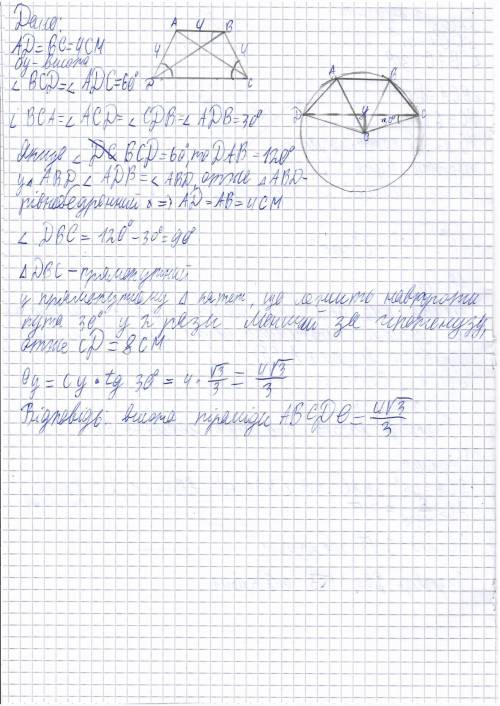 Дано:
AD=BC=4CM
Oy-висота
∠BCD=∠ADC=60°
∠BCA=∠ACD=∠CDB=∠ADB=30°
Якщо ∠ BCD=60°, то DAB-120°
у△ ABD ∠ADB=∠ABD, отже △ABD-
рівнобедрений => AD=AB=4CM
∠DBC=120°-30°=90°
△DBC-прямокутний
у прямокутному △ катет, що лежить навпроти
кута 30° у 2 рази менший за гіпотенузу,
отже CD=8CM
Oy=Cy·tg 30°=4·√3/3=4√3/3
Відповідь: висота піраміди ABCDO=4√3/3
A 4 B
4 4
D C
A B
D y C
O 30°